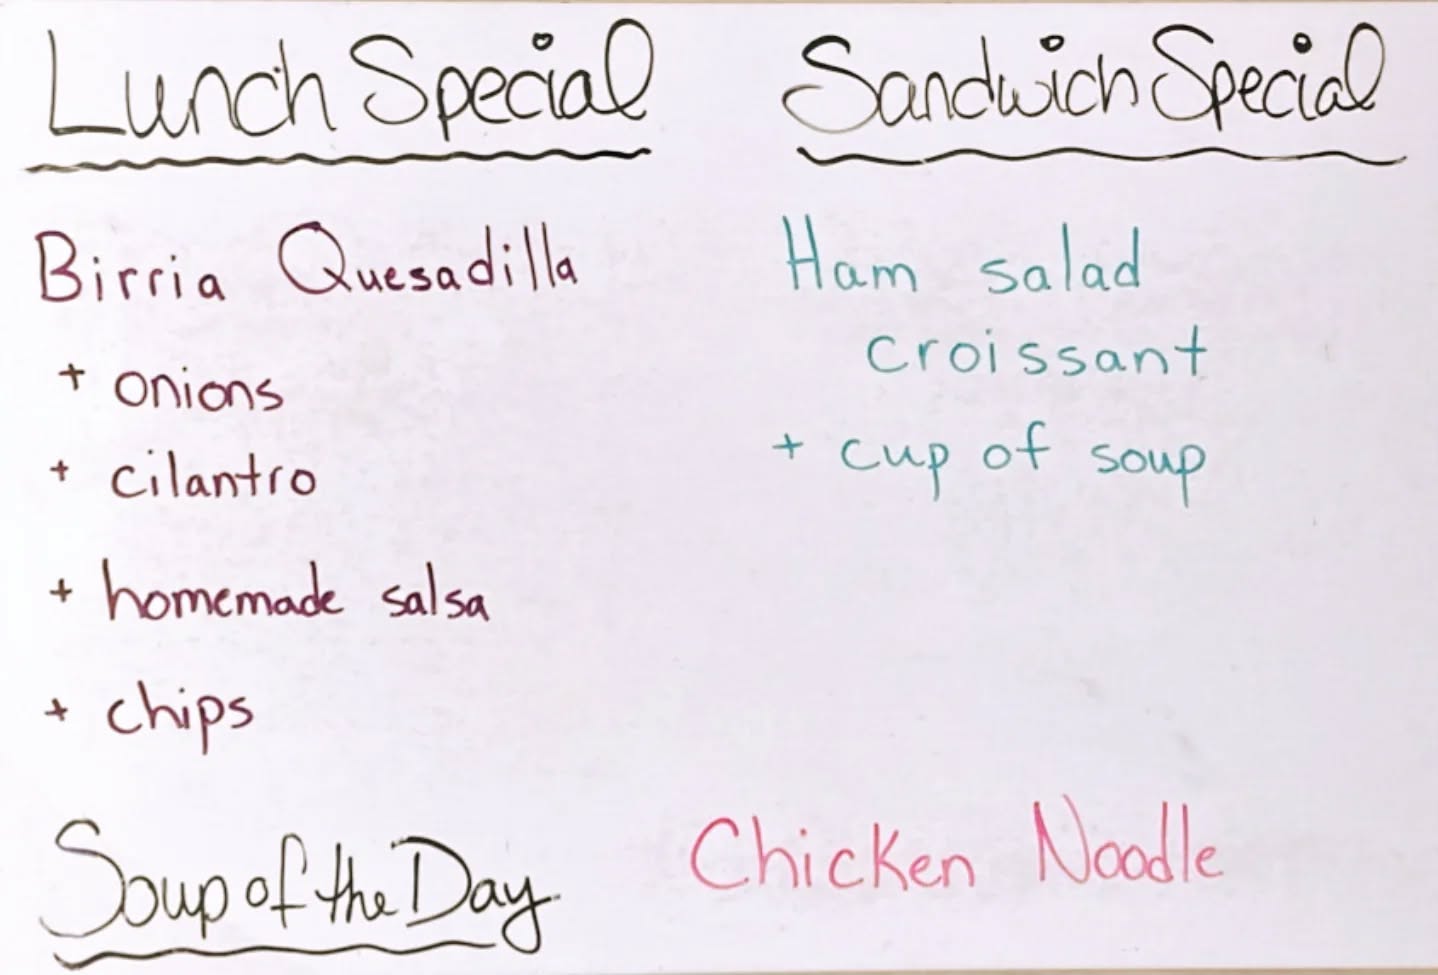 Lunch Special
Birria Quesadilla
+ onions
+ cilantro
+ homemade salsa
+ chips
Sandwich Special
Ham salad
croissant
+ cup of soup
Soup of the Day
Chicken Noodle